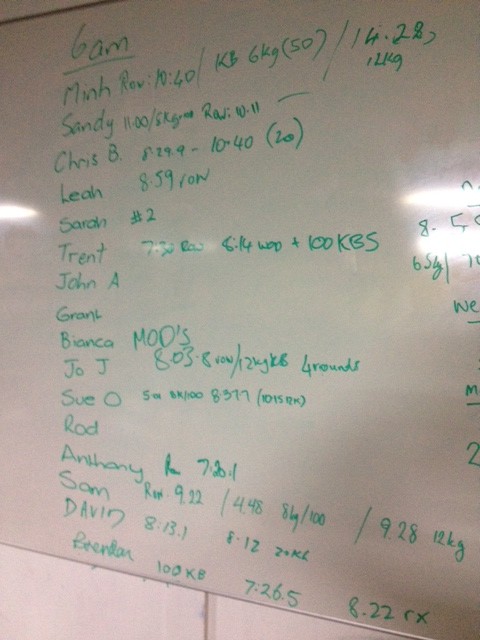 6am
Minh Row: 10:40 / KB 6kg (50) / 14.28
12kg
Sandy 11.00/5kg Row: 10.11
Chris B. 8.29.9 - 10.40 (20)
Leah 8.59 row
Sarah #2
Trent 7:30 Row 8:14 WOD + 100 KBS
John A
Grant
Bianca MOD'S
Jo J 8:03.8 row/12kg KB 4 rounds
Sue O
Rod
Anthony 7:20.1
Sam Row. 9.22 / 4.48 8kg/100 / 9.28 12kg
DAVID 8:13.1 8.12 20KG
Brendan 100KB 7:26.5 8.22 rx
8.
65kg/
we